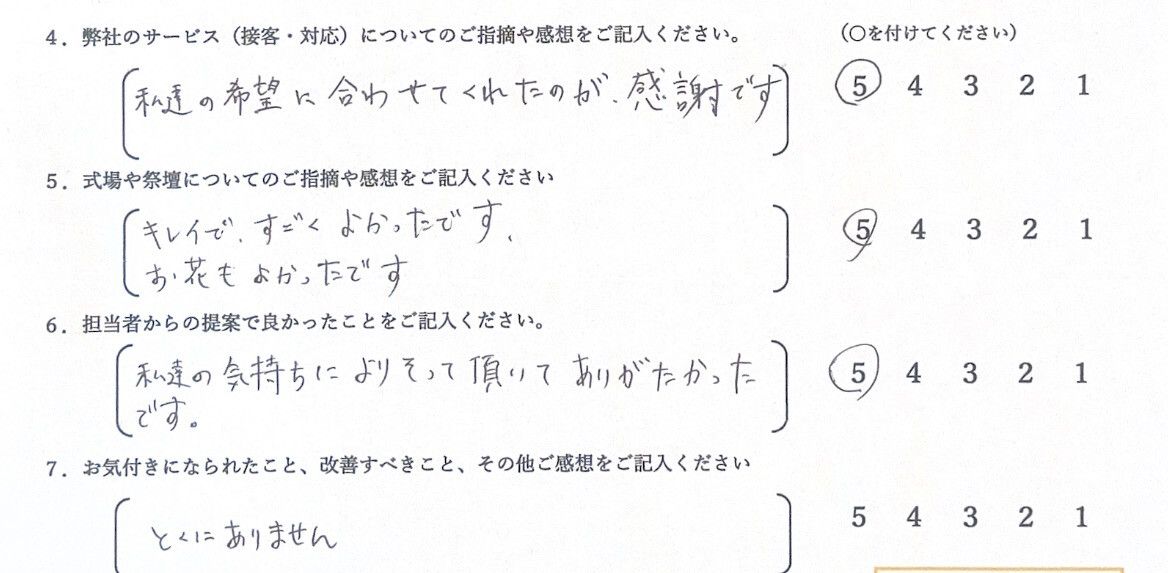 4．弊社のサービス（接客・対応）についてのご指摘や感想をご記入ください。 （〇を付けてください）
私達の希望に合わせてくれたのが、感謝です 5 4 3 2 1
5．式場や祭壇についてのご指摘や感想をご記入ください
キレイで、すごくよかったです、 5 4 3 2 1
お花もよかったです
6．担当者からの提案で良かったことをご記入ください。
私達の気持ちによりそって頂いてありがたかった 5 4 3 2 1
です。
7．お気付きになられたこと、改善すべきこと、その他ご感想をご記入ください
とくにありません 5 4 3 2 1